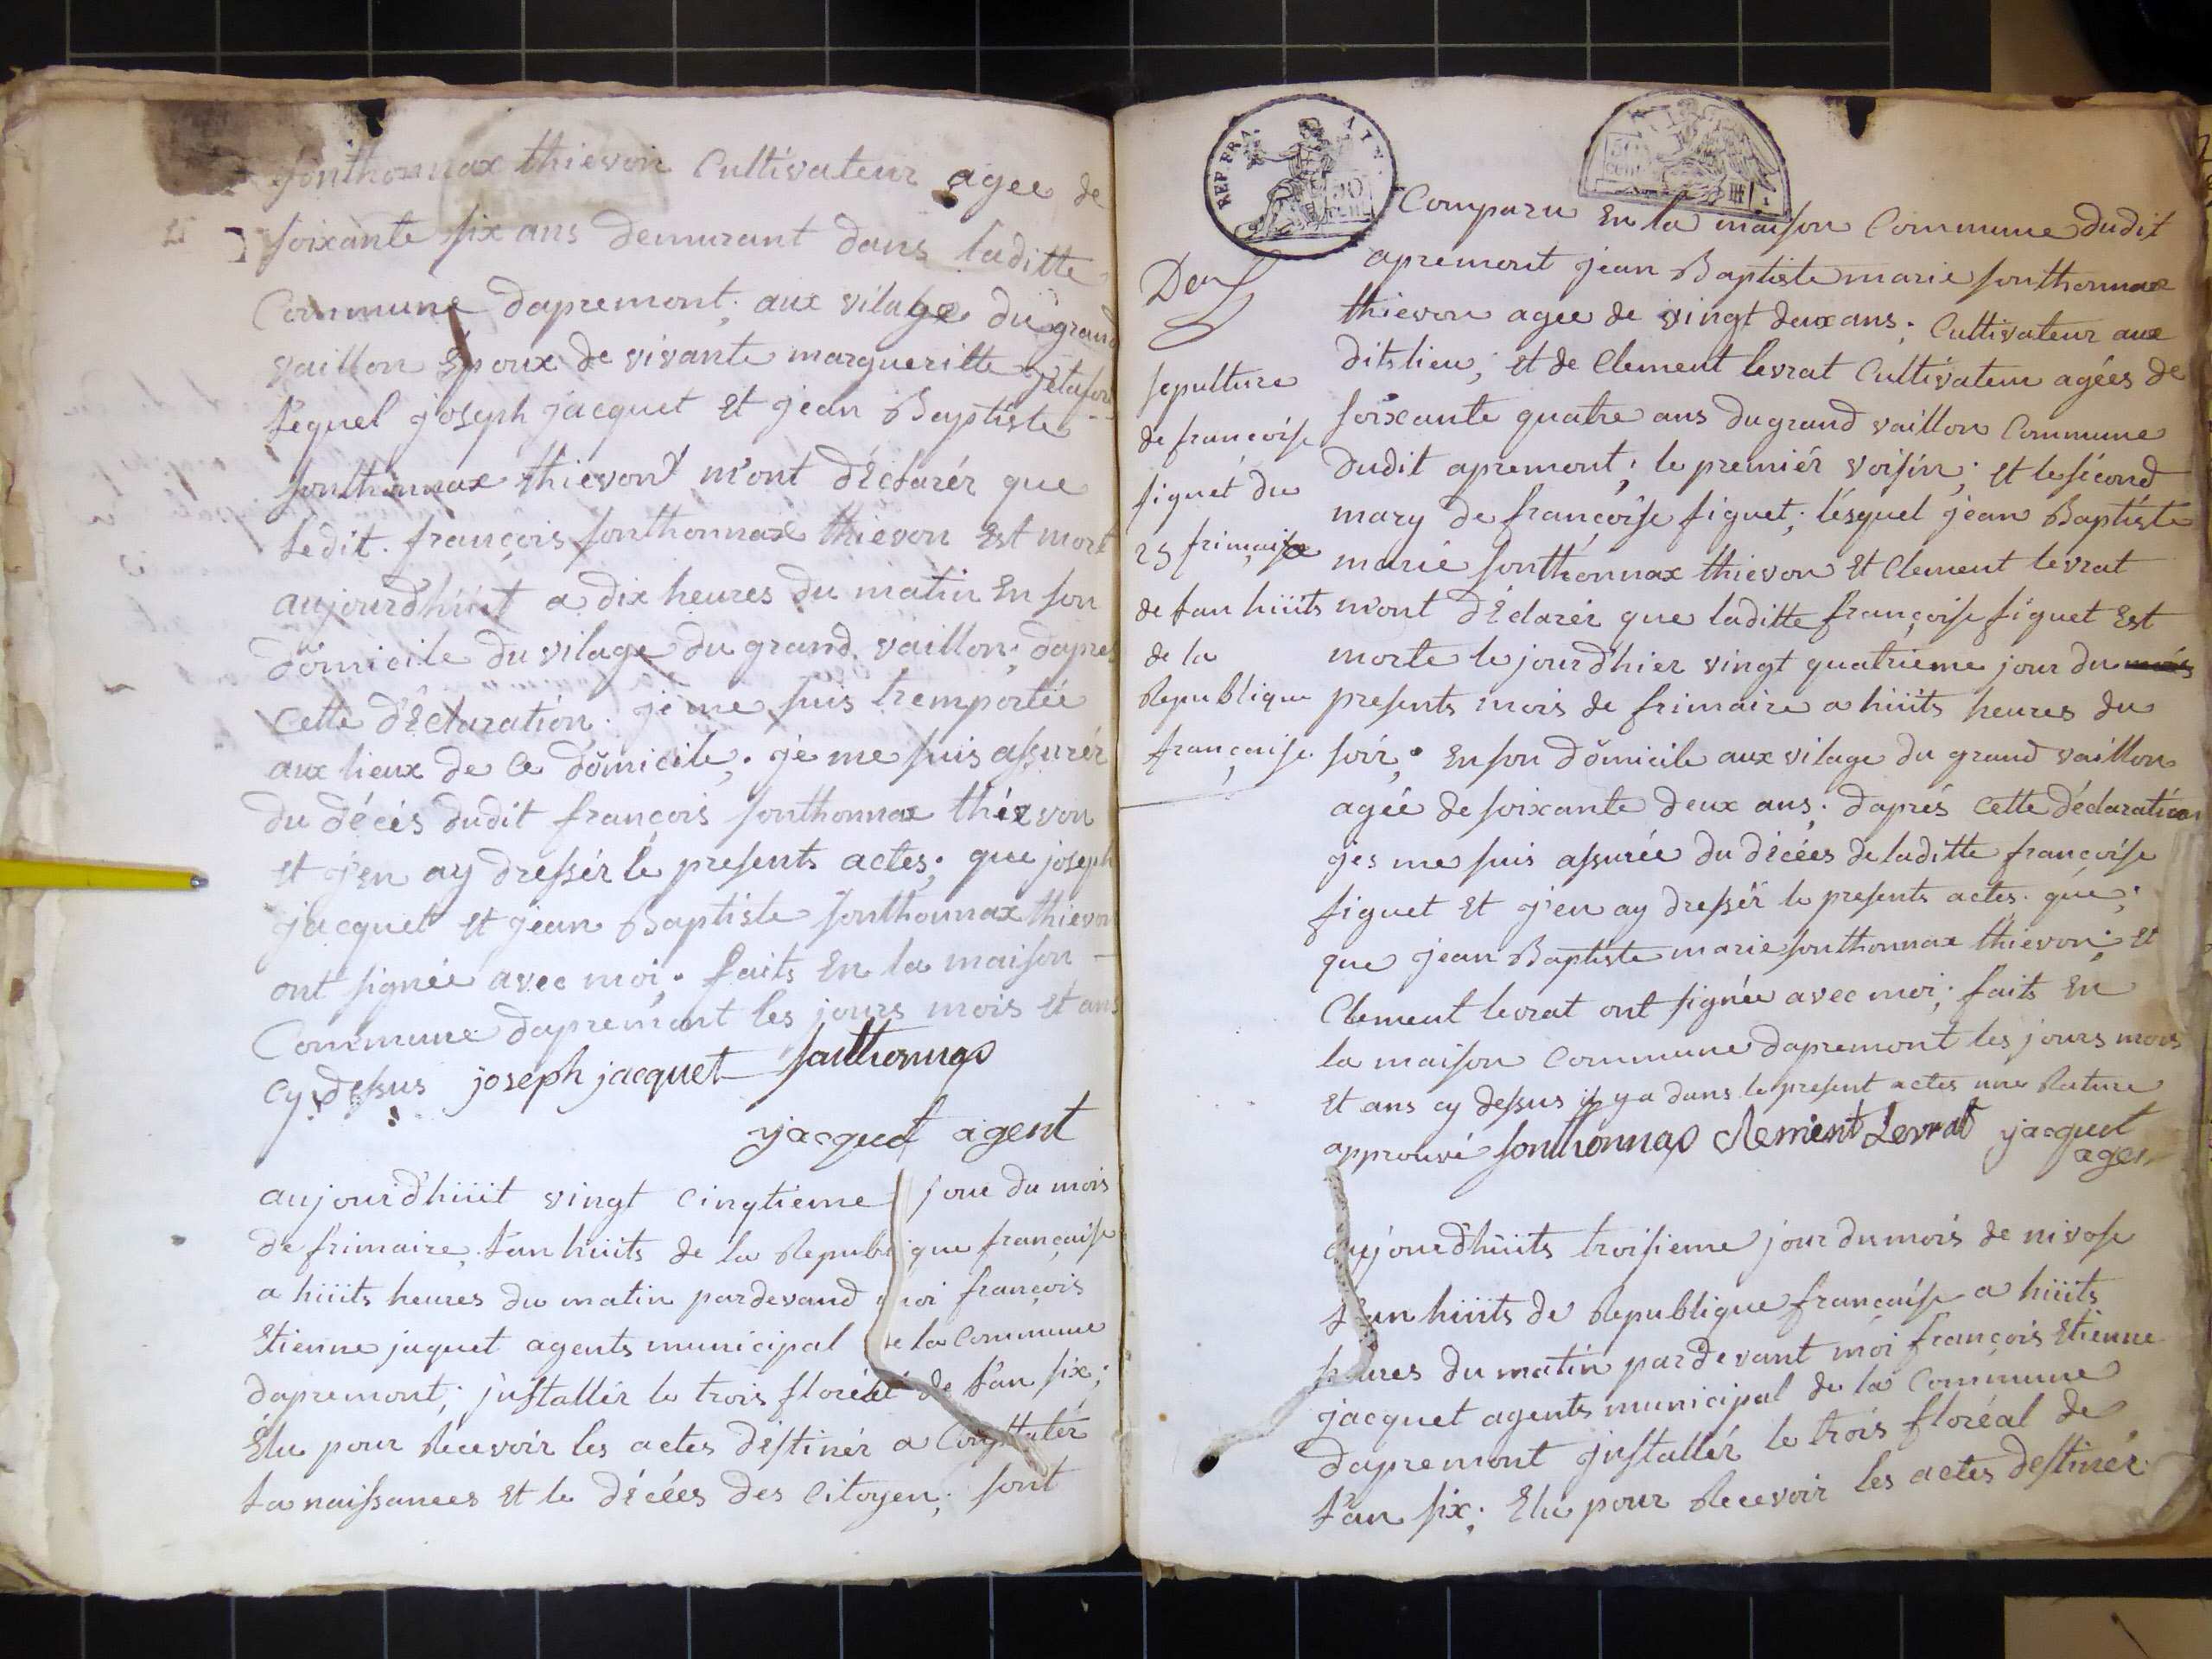 sonthonnax thievon Cultivateur agee de
soixante six ans demurant dans laditte
Commune dapremont; aux vilage du grand
vaillon Epoux de vivante margueritte
lequel joseph jacquet et jean Baptiste
sonthonnax thievon m'ont déclarér que
ledit. françois sonthonnax thievon Est mort
aujourd'hüit a dix heures du matin En son
domicile du vilage du grand vaillon; dapres
Cette déclaration. je me suis tremportée
aux lieux de Ce domicile; je me suis assurér
du décés dudit françois sonthonnax thievon
et j'en ay dressér le presents actes; que joseph
jacquet et jean Baptiste sonthonnax thievon
ont signée avec moi; faits En la maison
Commune dapremont les jours mois et ans
Cy dessus joseph jacquet sonthonnax
jacquet agent
aujourd'hüit vingt Cinqtieme jour du mois
de frimaire, l'an hüits de la Republique française
a hüits heures du matin pardevand moi françois
Etienne jaquet agents municipal de la Commune
dapremont; justallér le trois floréal de l'an six;
Elu pour Recevoir les actes déstinér a Consttatér
la naissances et le décées des Citoyen; sont
REP. FRA.
50
CENT
Comparu En la maison Commune dudit
apremont jean Baptiste marie sonthonnax
thievon agee de vingt deux ans; Cultivateur aux
dits lieu; et de Clement levrat Cultivateur agées de
soixante quatre ans du grand vaillon Commune
dudit apremont; le premiér voisin; et le sécond
mary de françoise figuet; lésquel jean Baptiste
marie sonthonnax thievon et Clement levrat
m'ont déclarér que laditte françoise figuet Est
morte le jour d'hier vingt quatrieme jour du mois
presents mois de frimaire a hüits heures du
soir; En son domicile aux vilage du grand vaillon
agée de soixante deux ans; daprés Cette déclaration
jes me suis assurée du décées de laditte françoise
figuet et j'en ay dressér le presents actes. que;
que jean Baptiste marie sonthonnax thievon; et
Clement levrat ont signée avec moi; faits En
la maison Commune dapremont les jours mois
et ans cy dessus il y a dans le present actes une Rature
approuvé sonthonnax Clement Levrat jacquet
agen
sepulture
de françoise
figuet du
25 frimaire
de l'an hüits
de la
Republique
française.
aujourd'hüits troisieme jour du mois de nivose
l'an hüits de Republique française a hüits
heures du matin pardevant moi françois Etienne
jacquet agents municipal de la Commune
dapremont justallér le trois floréal de
l'an six; Elu pour Recevoir les actes destinér